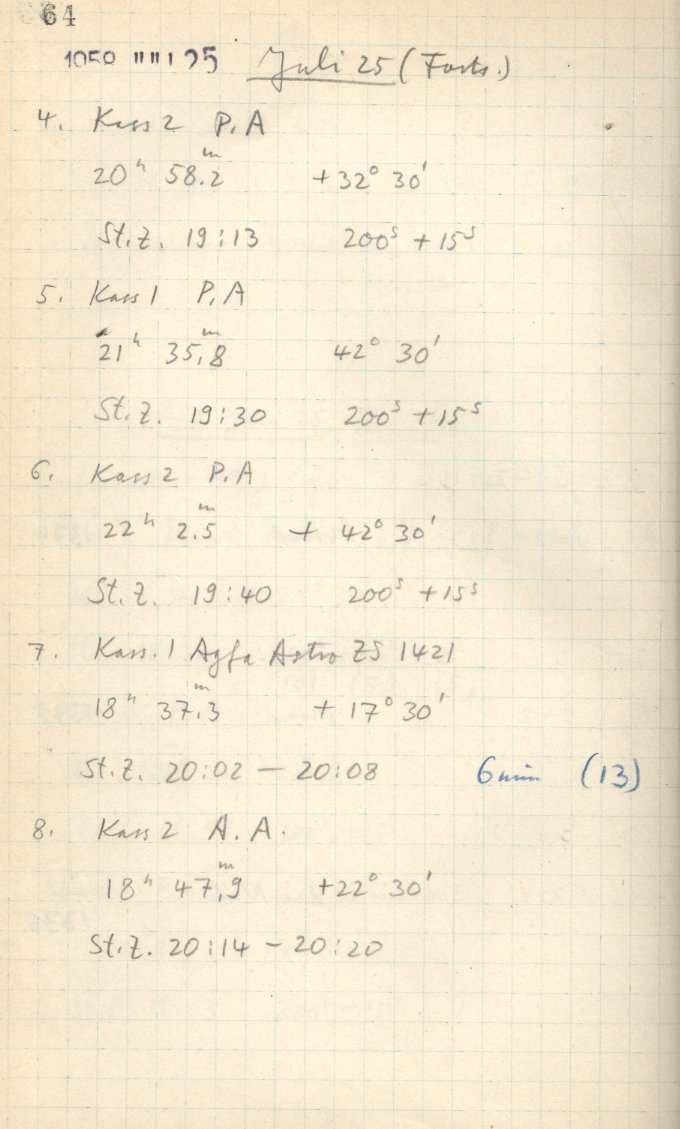 64
1958 JUL 25 Juli 25 (Forts.)
4. Kass 2 P.A
20ʰ 58.2ᵐ +32° 30'
St.Z. 19:13 200ˢ +15ˢ
5. Kass 1 P.A
21ʰ 35.8ᵐ 42° 30'
St.Z. 19:30 200ˢ +15ˢ
6. Kass 2 P.A
22ʰ 2.5ᵐ + 42° 30'
St.Z. 19:40 200ˢ +15ˢ
7. Kass. 1 Agfa Astro ZS 1421
18ʰ 37.3ᵐ + 17° 30'
St.Z. 20:02 — 20:08 6 min (13)
8. Kass 2 A.A.
18ʰ 47.9ᵐ +22° 30'
St.Z. 20:14 - 20:20